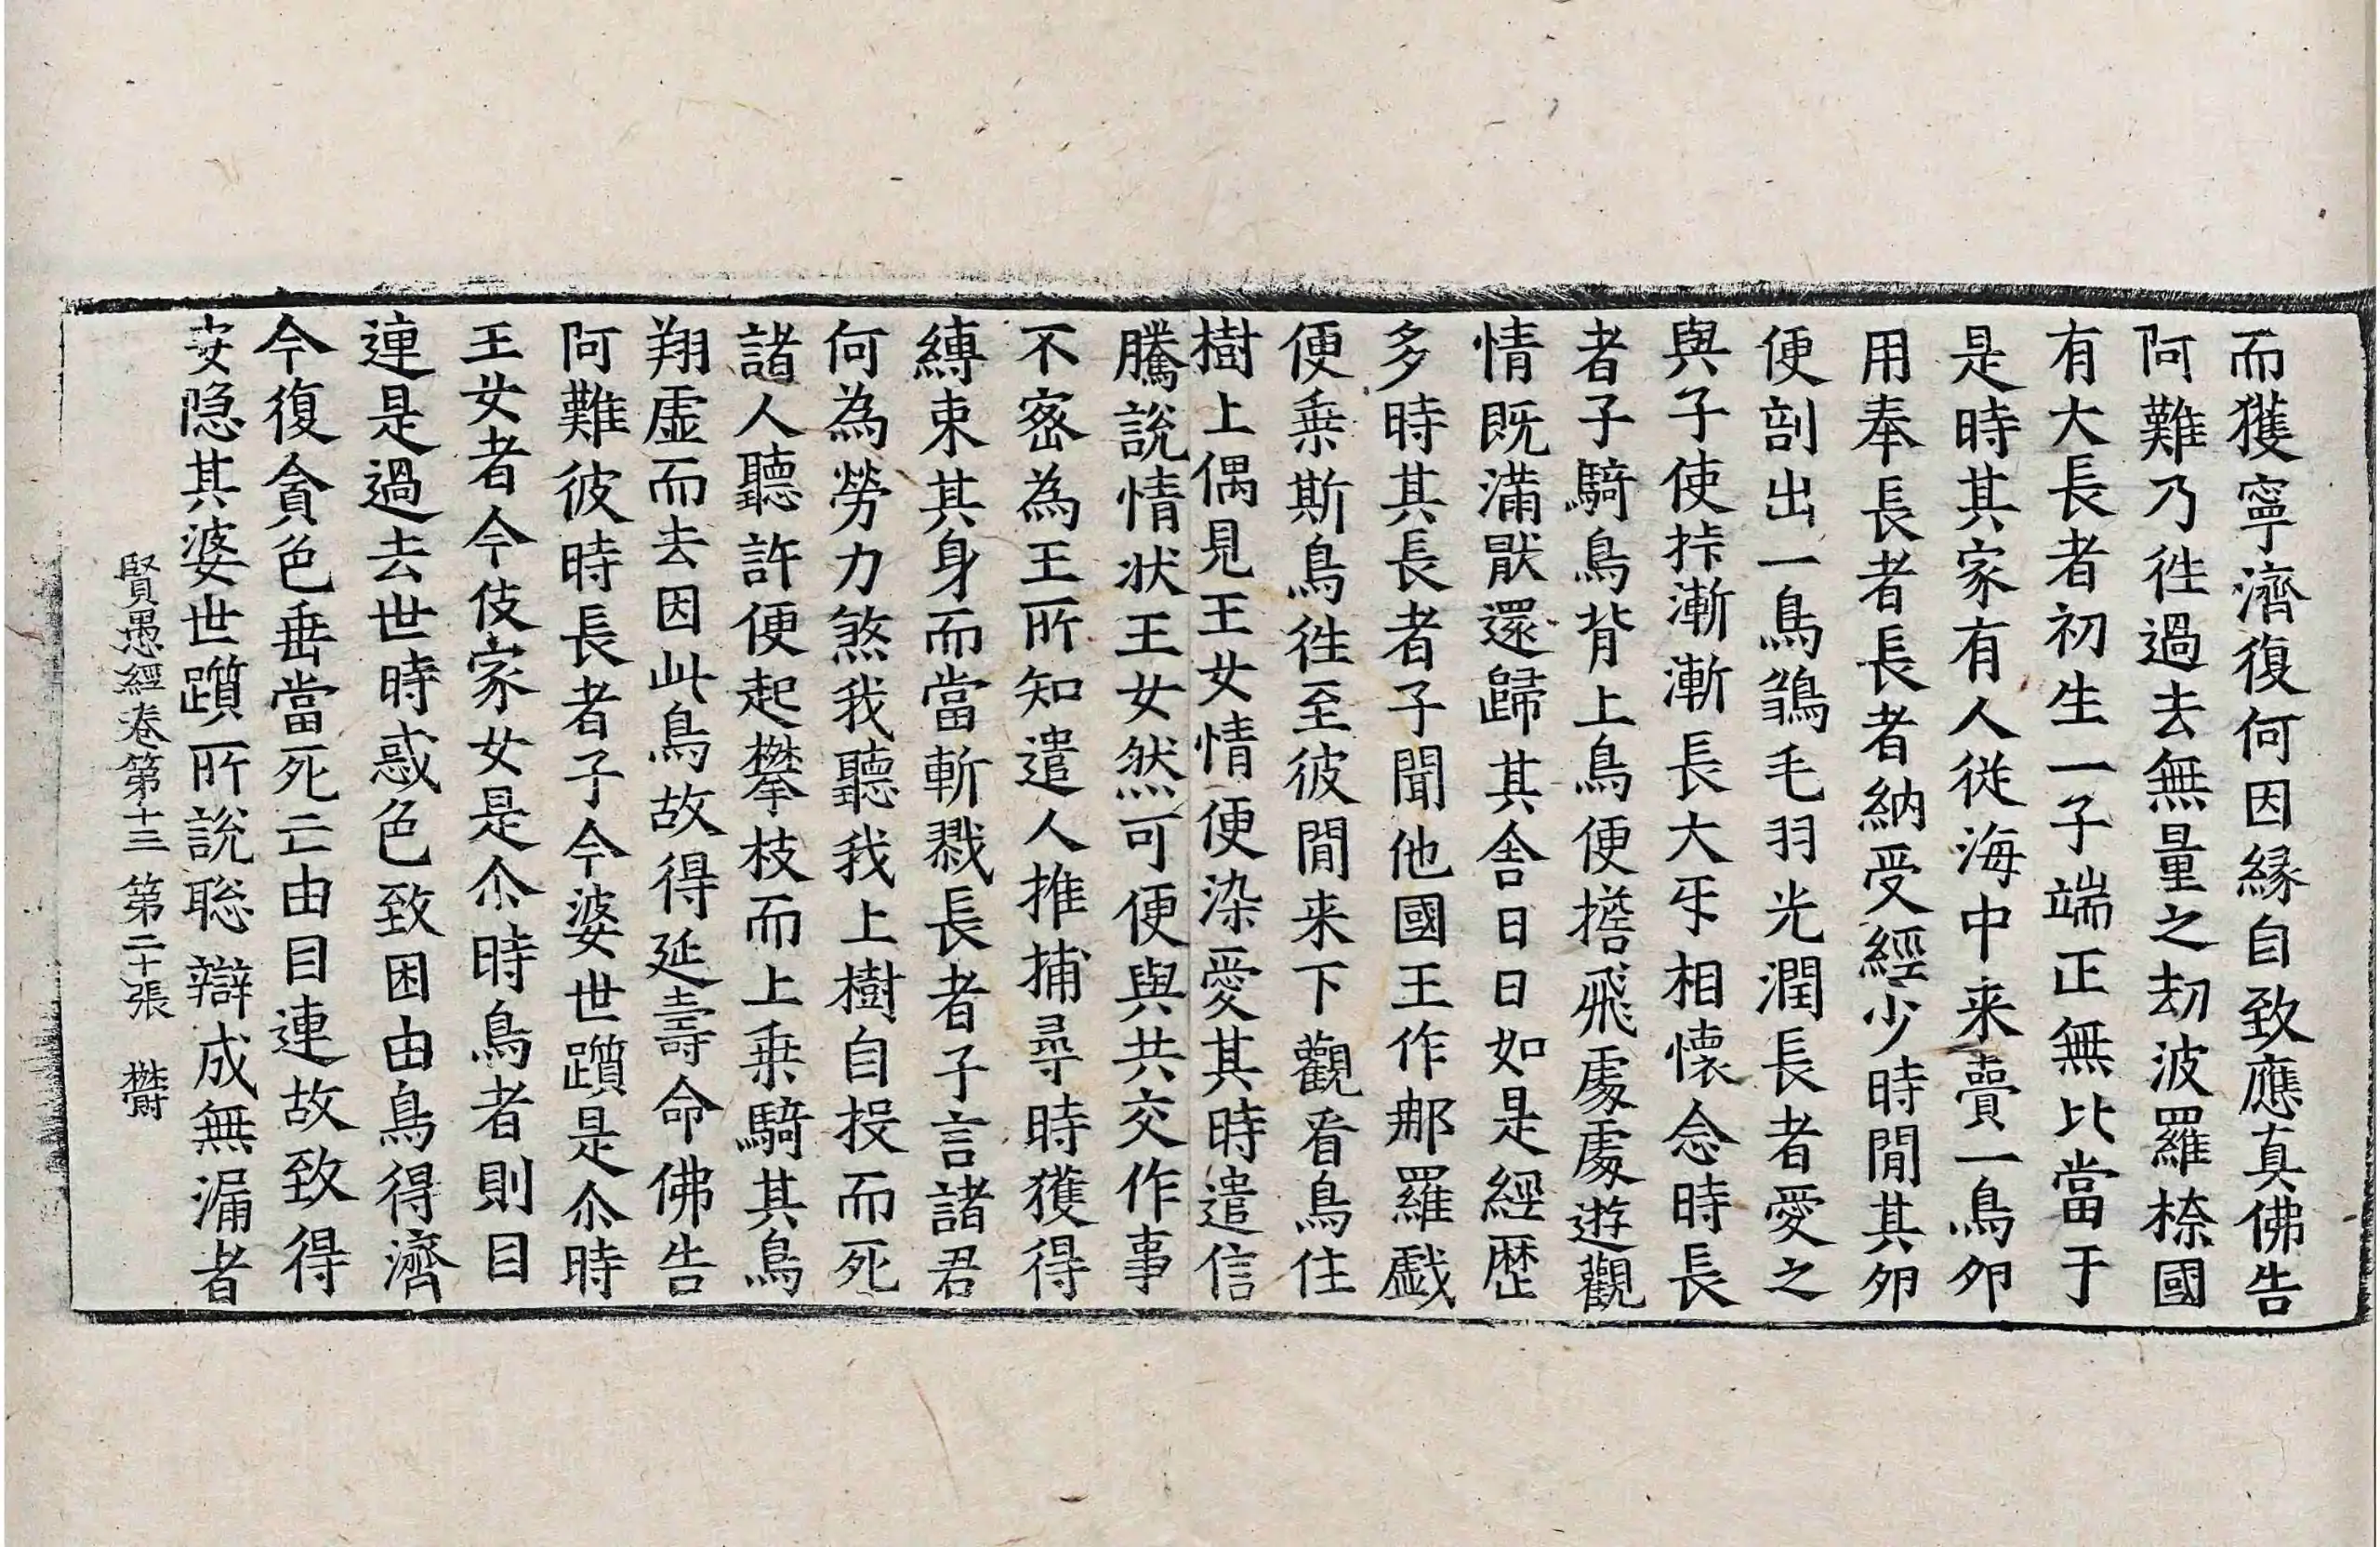 而獲寧濟復何因緣自致應真佛告
阿難乃徃過去無量之劫波羅㮈國
有大長者初生一子端正無比當于
是時其家有人從海中来賣一鳥夘
用奉長者長者納受經少時間其夘
便剖出一鳥鶵毛羽光潤長者愛之
與子使㧊漸漸長大㸦相懷念時長
者子騎鳥背上鳥便擔飛處處遊觀
情既滿猒還歸其舍日日如是經歴
多時其長者子聞他國王作那羅戱
便乗斯鳥徃至彼間来下觀看鳥住
樹上偶見王女情便染愛其時遣信
騰說情狀王女然可便與共交作事
不宻為王所知遣人推捕尋時獲得
縛束其身而當斬戮長者子言諸君
何為勞力煞我聽我上樹自投而死
諸人聽許便起攀枝而上乗騎其鳥
翔虛而去因此鳥故得延壽命佛告
阿難彼時長者子今婆世躓是尒時
王女者今伎家女是尒時鳥者則目
連是過去世時惑色致困由鳥得濟
今復貪色垂當死亡由目連故致得
安隐其婆世躓所說聡辯成無漏者
賢愚經卷第十三　第二十張　欝